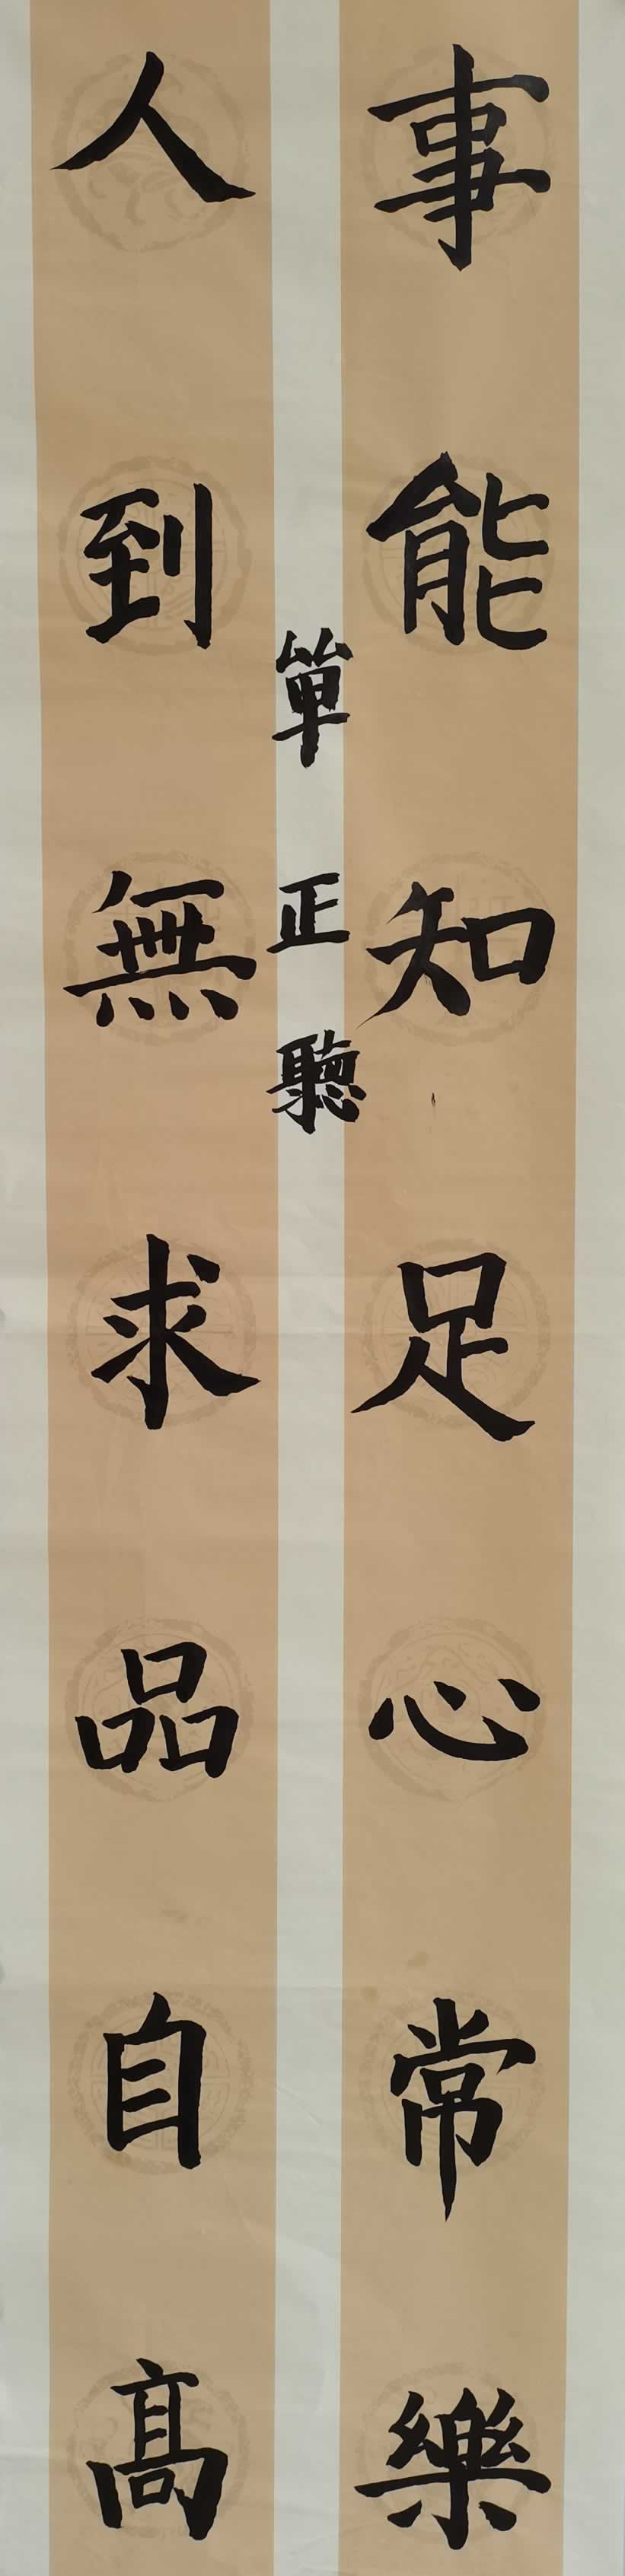 事能知足心常樂
人到無求品自高
單正聽